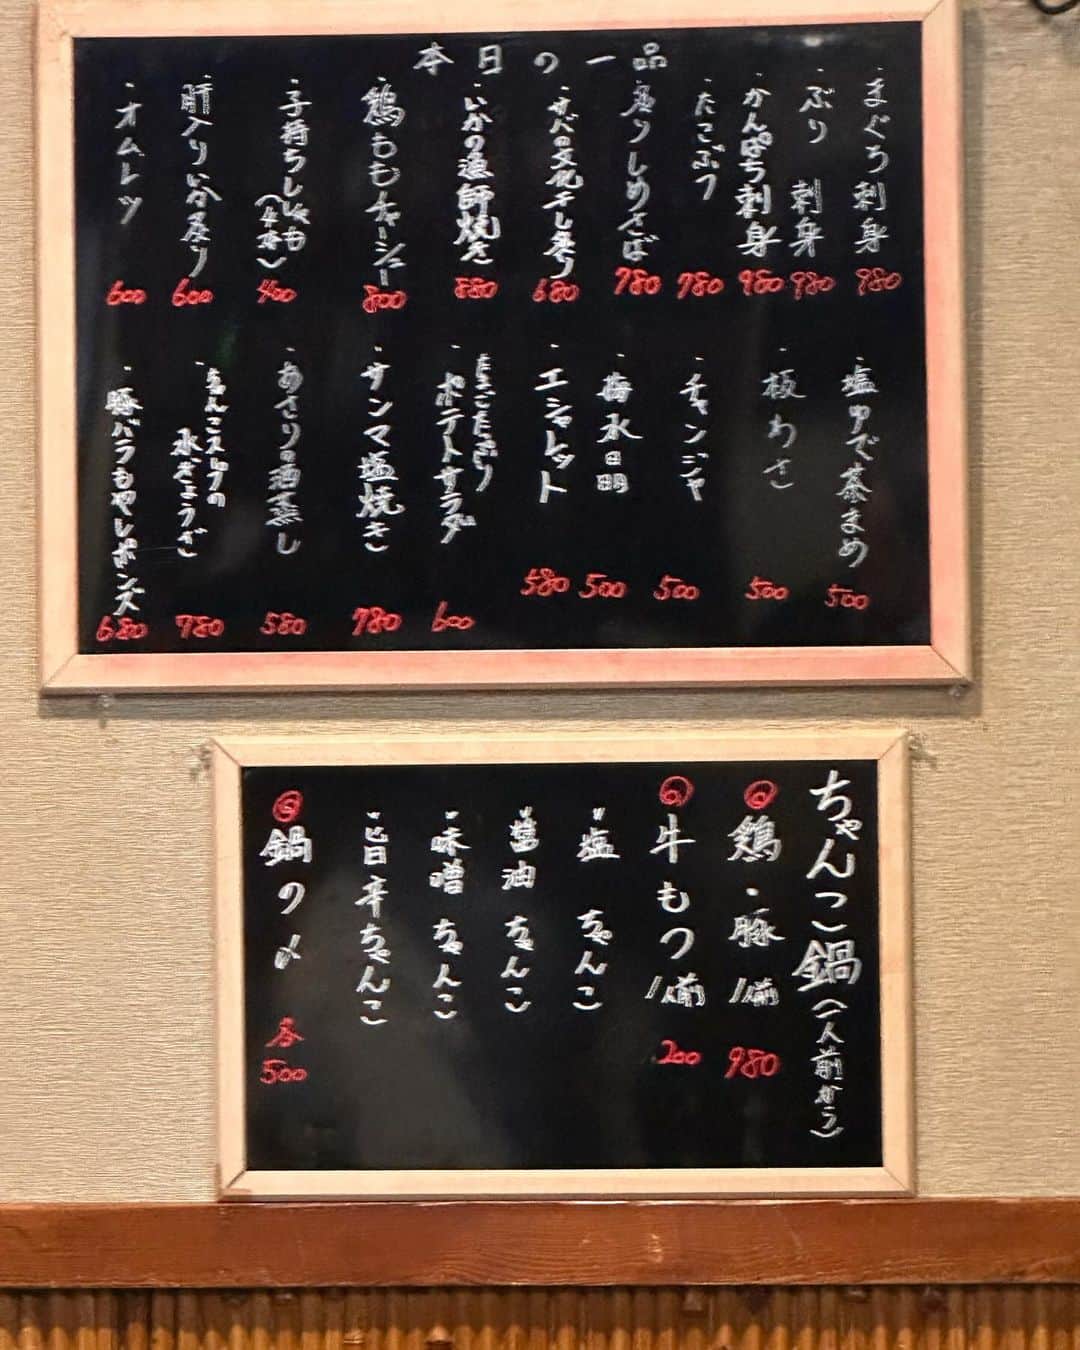 本日の一品
・まぐろ刺身 980
・ぶり 刺身 980
・かんぱち刺身 980
・たこぶつ 780
・炙りしめさば 780
・サバの文化干し炙り 680
・いかの漁師焼き 880
・鶏ももチャーシュー 800
・子持ちししゃも 400
・肝入りいか炙り 600
・オムレツ 600
・塩ゆで茶まめ 500
・板わさ 500
・チャンジャ 500
・梅水晶 500
・エシャレット 580
・たまごたっぷり
ポテトサラダ 600
・サンマ塩焼き 780
・あさりの酒蒸し 580
・ちゃんこスープの
水ぎょうざ 780
・豚バラもやしポンズ 680
ちゃんこ鍋(一人前から)
鶏・豚 1人前 980
牛もつ 1人前 200
塩 ちゃんこ
醤油 ちゃんこ
味噌 ちゃんこ
旨辛ちゃんこ
鍋の〆 各500